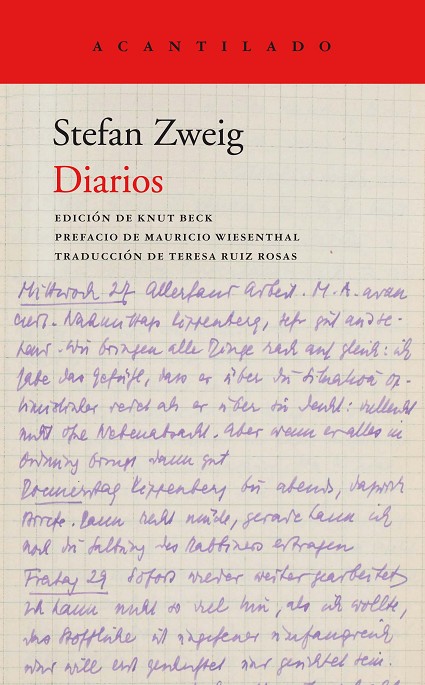 ACANTILADO
Stefan Zweig
Diarios
EDICIÓN DE KNUT BECK
PREFACIO DE MAURICIO WIESENTHAL
TRADUCCIÓN DE TERESA RUIZ ROSAS
Mittwoch 27 Allerhand Arbeit. M. A. avan
ciert. Nachmittags Kippenberg, sehr gut
Wir bringen alle Dinge auf gleich: ich
habe das Gefühl, dass er über die Situation op-
timistischer redet als er über sie denkt: vielleicht
nicht ohne Nebenabsicht. Aber wenn er alles in
Ordnung bringt dann gut
Donnerstag Kippenberg bis abends,
Briefe. Dann recht müde, gerade kann ich
noch die des Rabbiners ertragen
Freitag 29 Sofort wieder weiter gearbeitet
Ich kann nicht so viel hin, als ich wollte,
das Stoffliche ist ungeheuer umfangreich
und will erst und gerichtet sein.